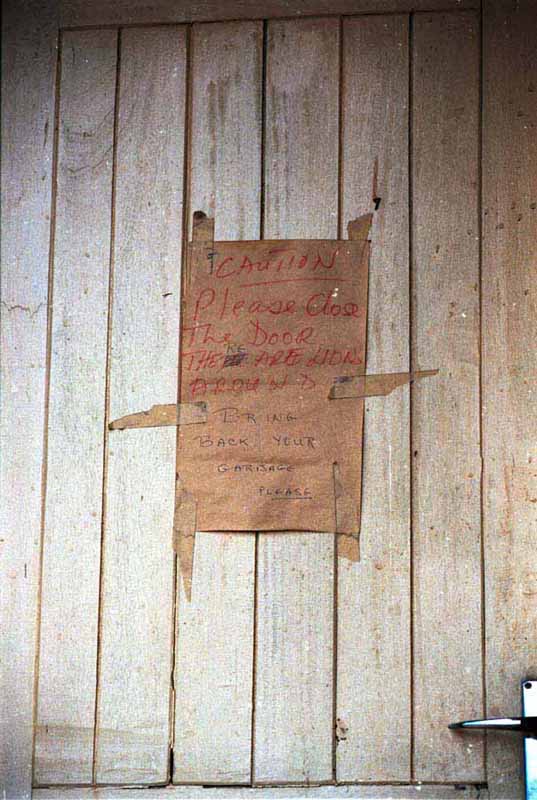 CAUTION
Please Close
The Door
THERE ARE LIONS
AROUND
BRING
BACK YOUR
GARBAGE
PLEASE